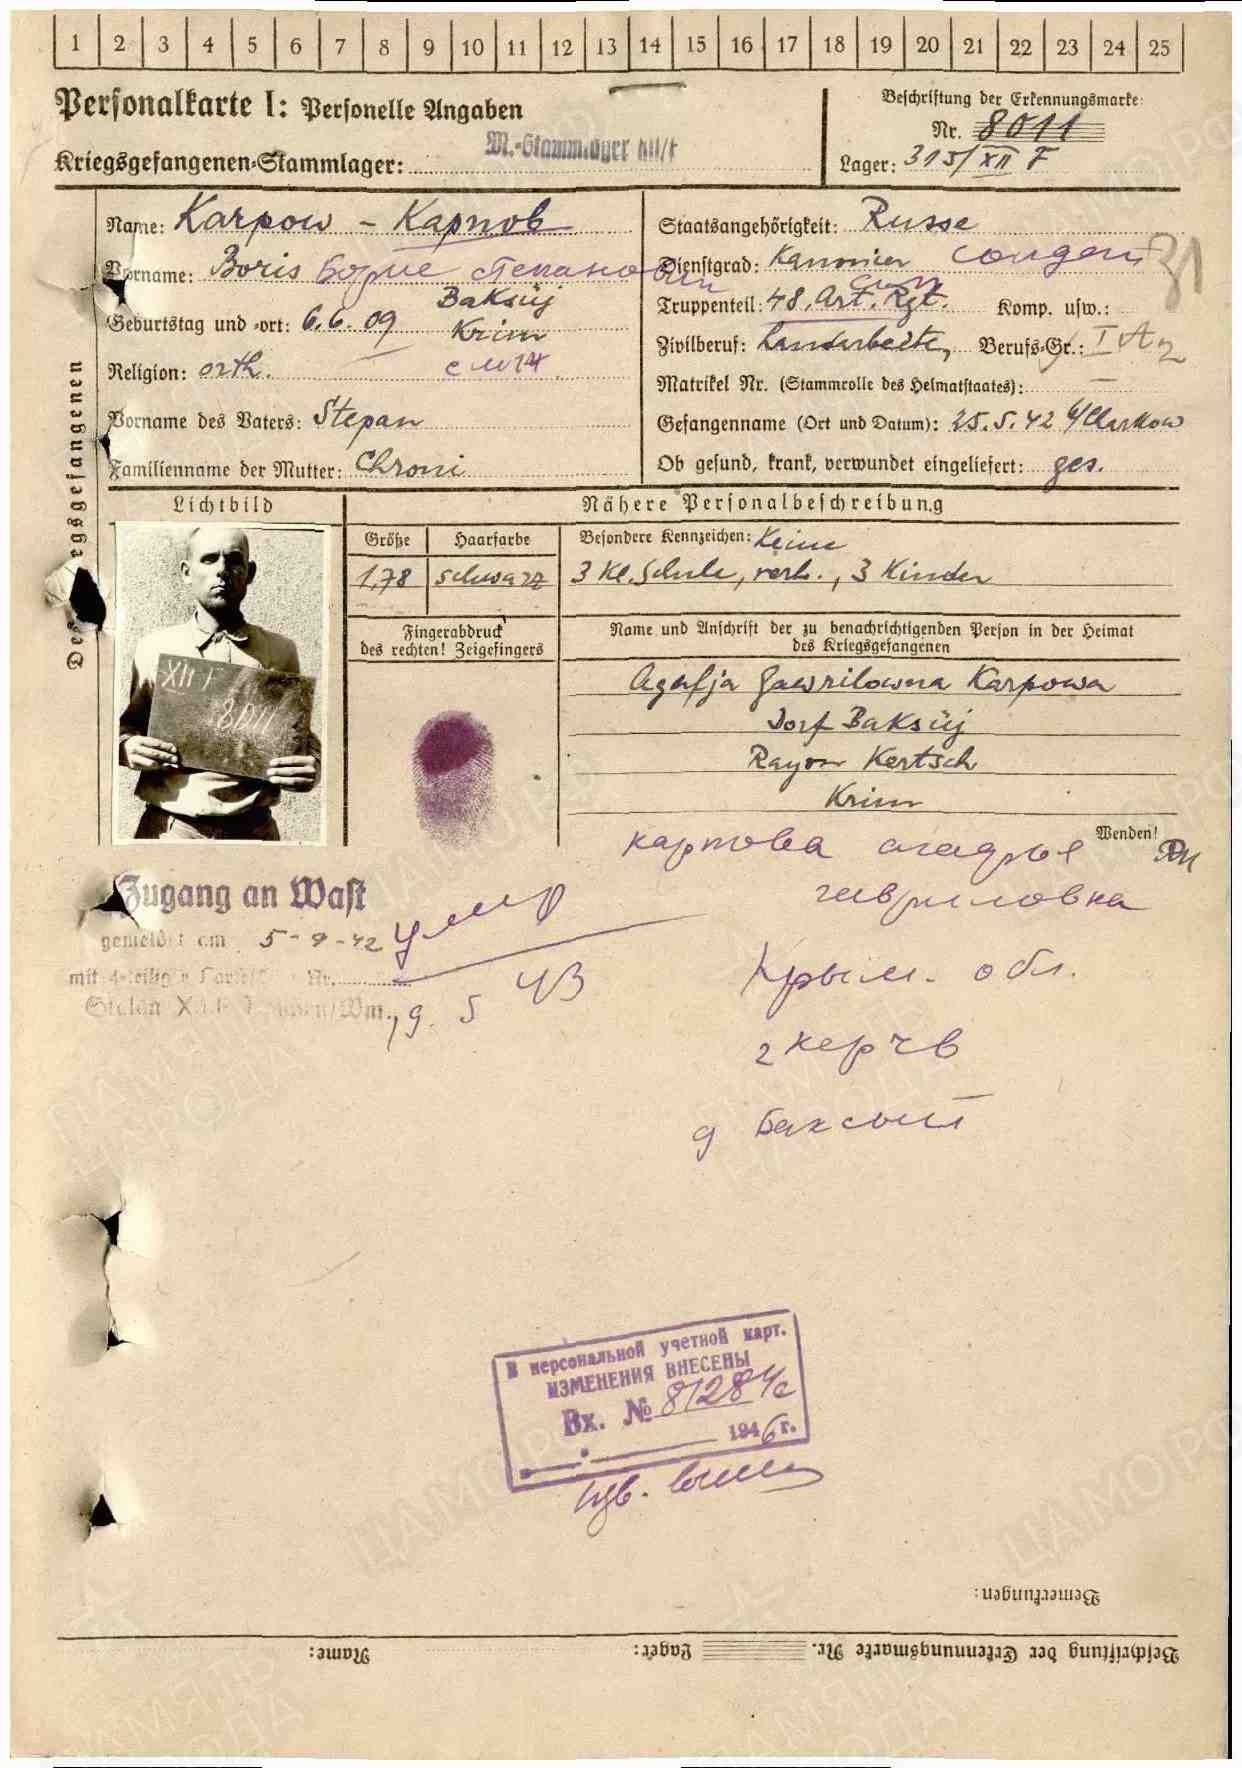 1 2 3 4 5 6 7 8 9 10 11 12 13 14 15 16 17 18 19 20 21 22 23 24 25
Personalkarte I: Personelle Angaben
Beschriftung der Erkennungsmarke:
Nr. 8011
Kriegsgefangenen-Stammlager: M.-Stammlager XII/F
Lager: 315/XII F
Des Kriegsgefangenen
Name: Karpow - Карпов
Vorname: Boris Борис Степанович
Geburtstag und -ort: 6.6.09 Baksüj
Krim
Religion: orth.
Vorname des Vaters: Stepan
Familienname der Mutter: Chroni
Staatsangehörigkeit: Russe
Dienstgrad: Kanonier солдат
Truppenteil: 48. Art. Rgt. Komp. usw.:
Zivilberuf: Landarbeiter Berufs-Gr.: I
Matrikel Nr. (Stammrolle des Heimatstaates): —
Gefangenname (Ort und Datum): 25.5.42 b/Charkow
Ob gesund, krank, verwundet eingeliefert: ges.
Lichtbild
Nähere Personalbeschreibung
Größe Haarfarbe
1,78 schwarz
Besondere Kennzeichen: Keine
3 Kl. Schule, verh., 3 Kinder
Fingerabdruck
des rechten! Zeigefingers
Name und Anschrift der zu benachrichtigenden Person in der Heimat
des Kriegsgefangenen
Agafja Gawrilowna Karpowa
Dorf Baksüj
Rayon Kertsch
Krim
XII F
8011
Wenden!
карпова агафья
гавриловна
Крым. обл.
г керчь
д Баксый
Zugang an Wast
gemeldet am 5-9-42
умер
19. 5 43
В персональной учетной карт.
ИЗМЕНЕНИЯ ВНЕСЕНЫ
Вх. № 81284с
1946 г.
Bemerkungen:
Name: Lager: Beschriftung der Erkennungsmarke Nr.